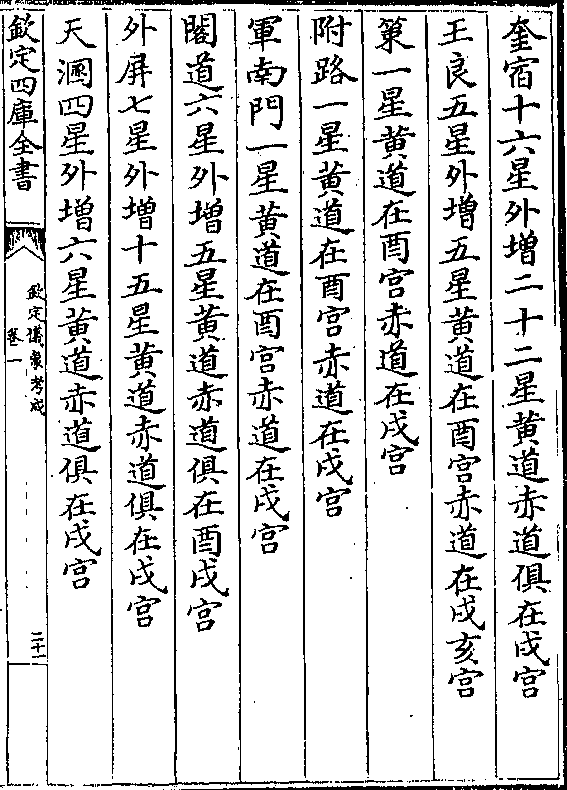 奎宿十六星外增二十二星黃道赤道俱在戌宮
王良五星外增五星黃道在酉宮赤道在戌亥宮
策一星黃道在酉宮赤道在戌宮
附路一星黃道在酉宮赤道在戌宮
軍南門一星黃道在酉宮赤道在戌宮
閣道六星外增五星黃道赤道俱在酉戌宮
外屏七星外增十五星黃道赤道俱在戌宮
天溷四星外增六星黃道赤道俱在戌宮
欽定四庫全書
欽定儀象考成
卷一
二十一